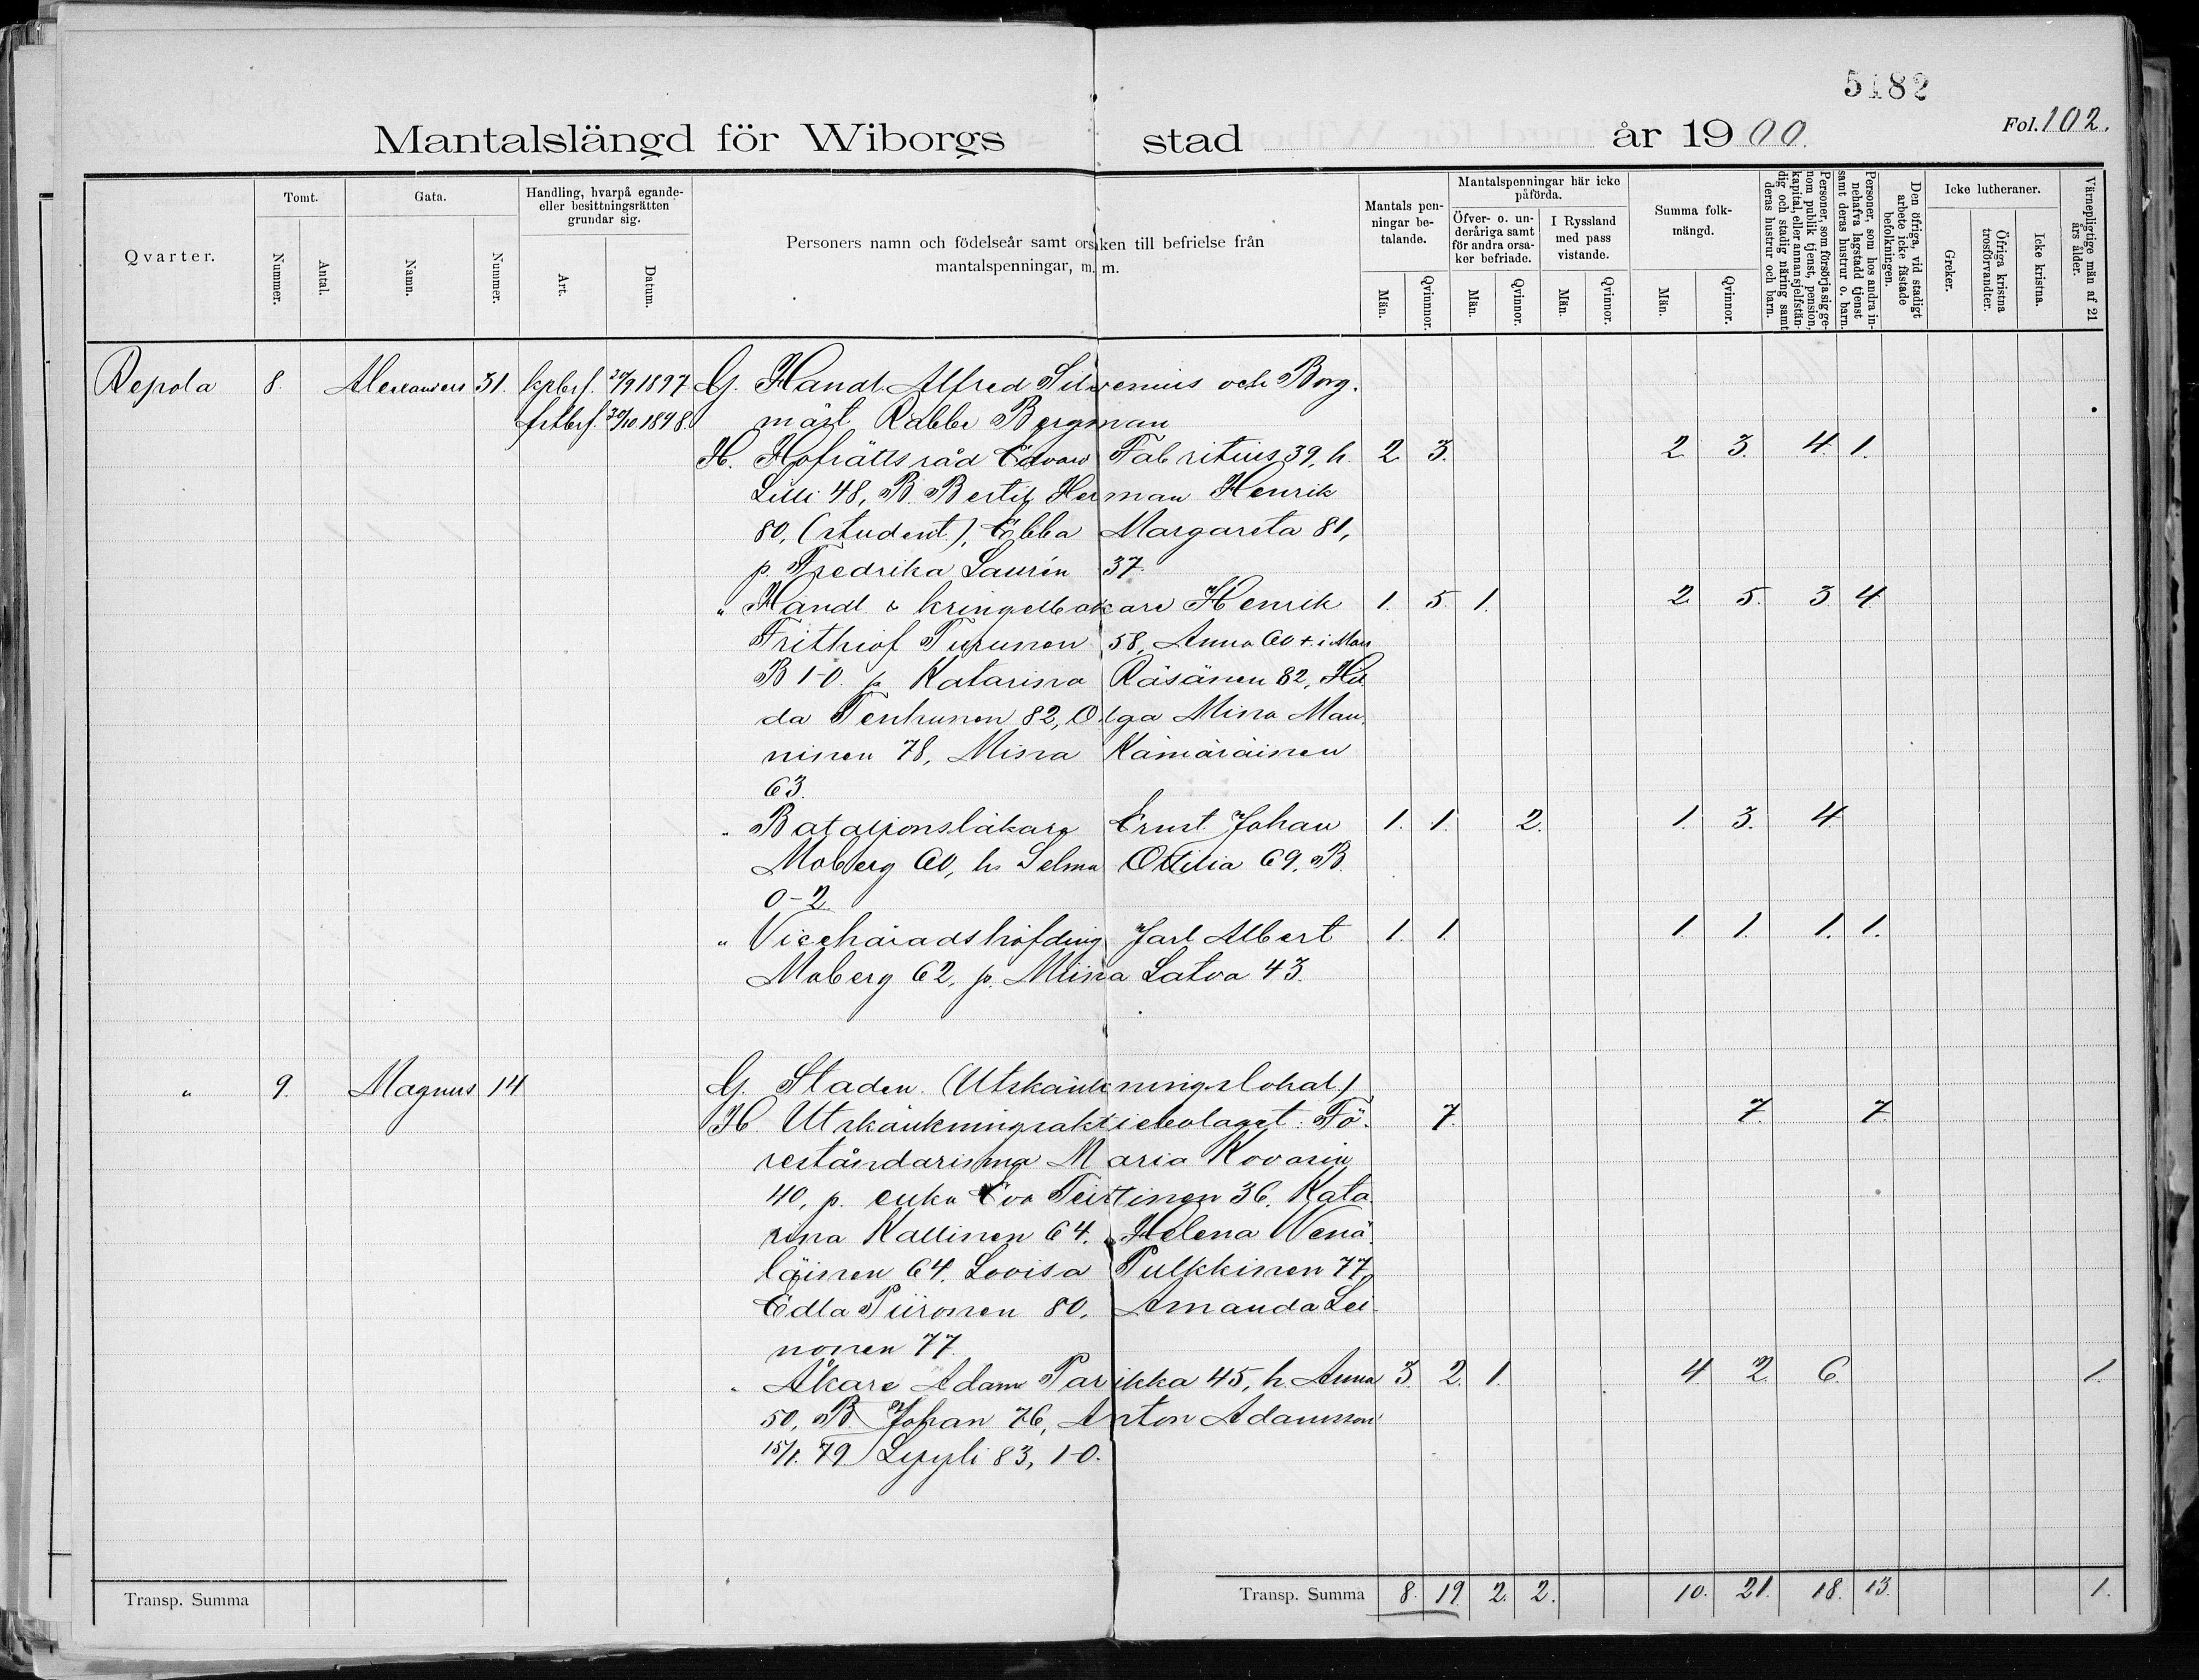 5182
Fol. 102.
Mantalslängd för Wiborgs stad år 1900.
Qvarter.
Tomt.
Nummer.
Antal.
Gata.
Namn.
Nummer.
Handling, hvarpå egande-
eller besittningsrätten
grundar sig.
Art.
Datum.
Personers namn och födelseår samt orsaken till befrielse från
mantalspenningar, m. m.
Mantals pen-
ningar be-
talande.
Män.
Qvinnor.
Mantalspenningar här icke
påförda.
Öfver- o. un-
deråriga samt
för andra orsa-
ker befriade.
Män.
Qvinnor.
I Ryssland
med pass
vistande.
Män.
Qvinnor.
Summa folk-
mängd.
Män.
Qvinnor.
Personer, som försörja sig ge-
nom publik tjenst, pension,
kapital, eller annan sjelfstän-
dig och stadig näring samt
deras hustrur och barn.
Personer, som hos andra in-
nehafva lagstadd tjenst
samt deras hustrur o. barn.
Den öfriga, vid stadigt
arbete icke fästade
befolkningen.
Icke lutheraner.
Greker.
Öfriga kristna
trosförvandter.
Icke kristna.
Värnepligtige män af 21
års ålder.
Repola 8. Alexanders 31. kpbrf. 20/9 1897. G. Handl. Alfred Silvenius och Borg.
fstbrf. 20/10 1898. mäst. Rabbe Bergman
H. Hofrättsråd Edvard Fabritius 39, h. 2 3. 2 3. 4 1.
Lilli 48, B. Bertil Herman Henrik
80, (student), Ebba Margareta 81,
p. Fredrika Laurén 37.
" Handl. & kringelbakare Henrik 1. 5. 1. 2 5. 3 4
Frithiof Turunen 58, Anna 60 †. i Mars
B 1-0. p. Katarina Räsänen 82, Hil
da Tenhunen 82, Olga Mina Man.
ninen 78, Mina Kämäräinen
63.
" Bataljonsläkare Ernst Johan 1. 1. 2. 1. 3. 4
Moberg 60, h. Selma Ottilia 69, B.
0-2
" Vicehäradshöfding Jarl Albert 1. 1. 1. 1. 1. 1.
Moberg 62, p. Miina Latva 43.
" 9. Magnus 14 G. Staden. (Utskänkningslokal.)
H. Utskänkningsaktiebolaget: Fö- 7. 7. 7.
reståndarinna Maria Kovasin
40, p. enka Eva Teittinen 36, Kata
rina Kallinen 64, Helena Wenä
läinen 64, Lovisa Pulkkinen 77,
Edla Piironen 80, Amanda Lei
nonen 77.
" Åkare Adam Parikka 45, h. Anna 3. 2. 1. 4. 2. 6. 1
50, B. Johan 76, Anton Adamsson
15/1. 79 Lyyli 83, 1-0.
Transp. Summa
Transp. Summa 8. 19. 2. 2. 10. 21. 18. 13. 1.